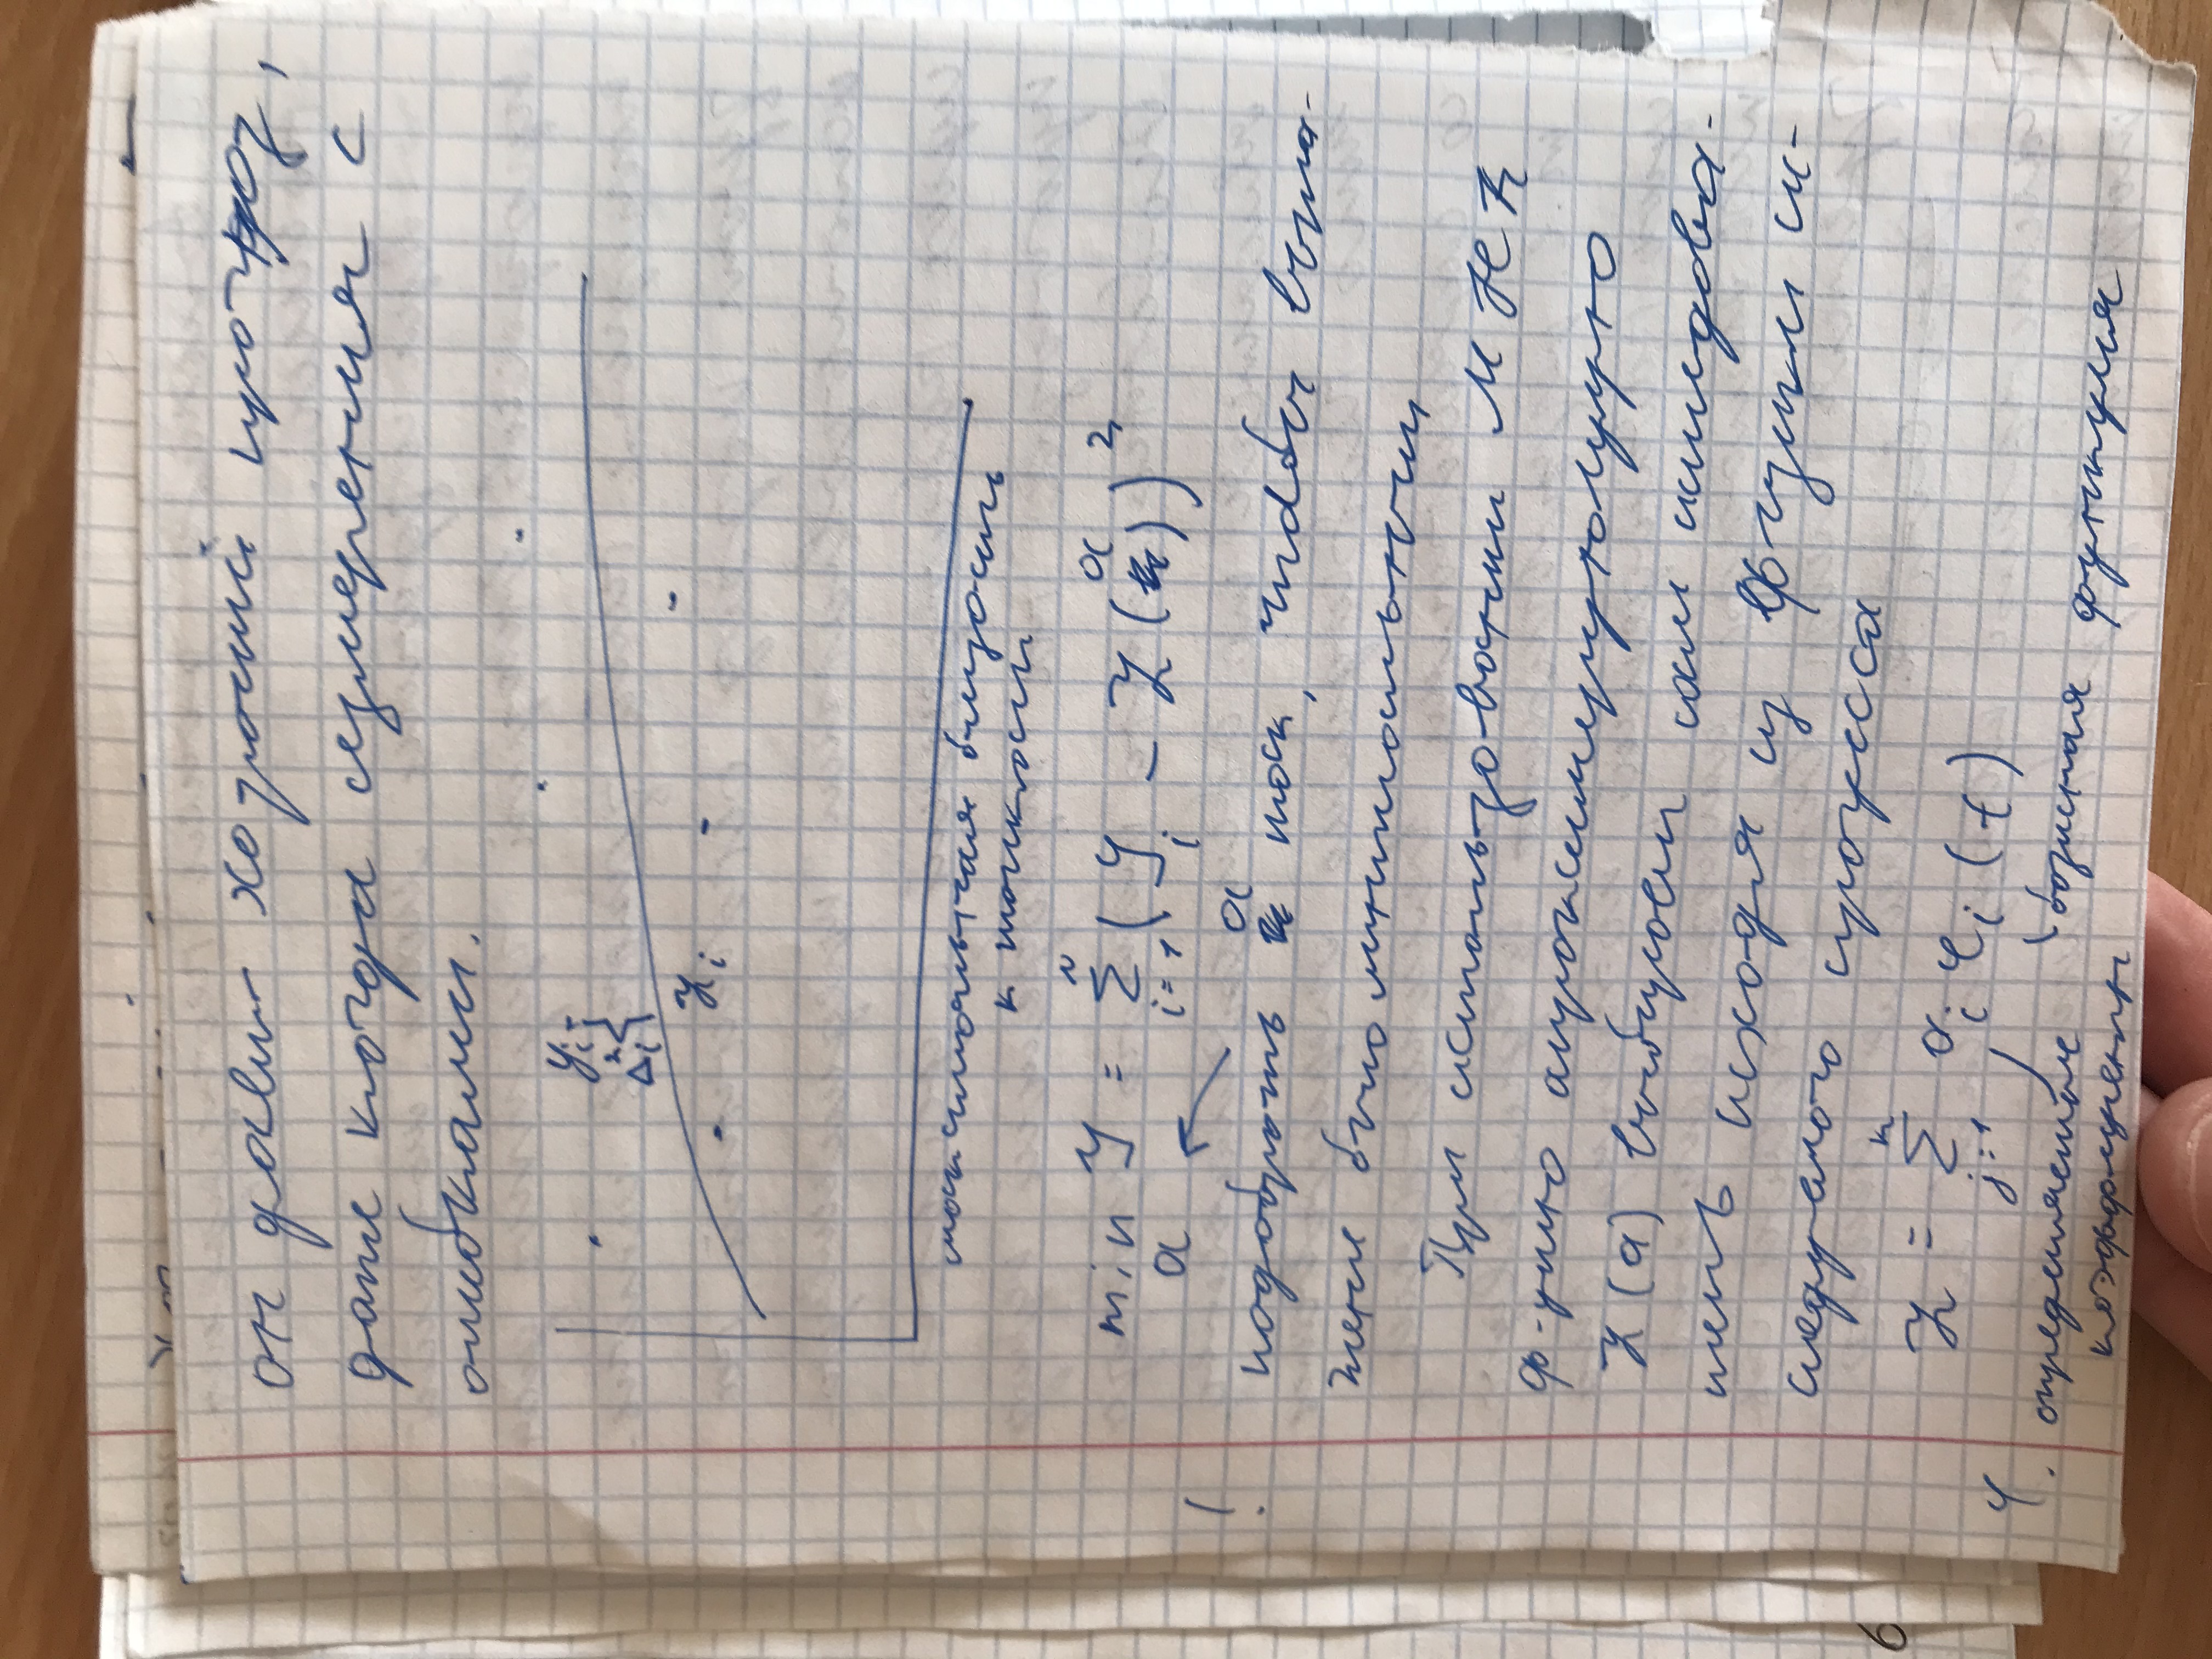 он даёт хороший прогноз,
даже когда измерения с
ошибками.
yi
Δi²
Zi
максимальная близость
к точкам
min y = Σ (yi - Z(a))²
a i=1
! подобрать a так, чтобы выра-
жение было минимальным
При использовании МНК
ф-цию апроксимерующую
Z(a) выбирает сам исследова-
тель исходя из физики ис-
следуемого процесса
Z = Σ ai φi (t)
k
j=1
4. определяемые базисная функция
коэффициенты
6